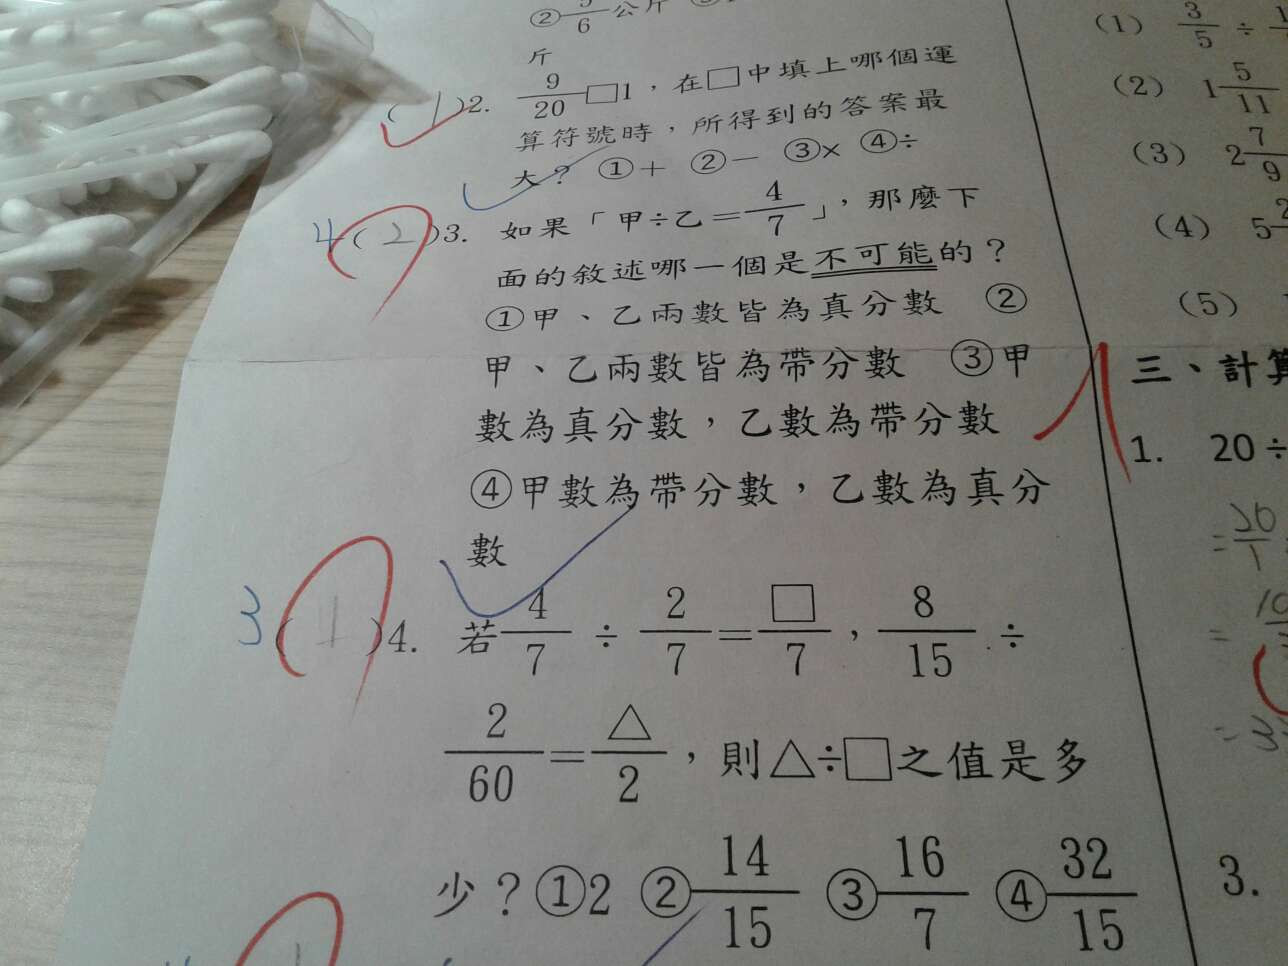 ② 5/6 公斤
斤
(1)2. 9/20□1，在□中填上哪個運
算符號時，所得到的答案最
大？ ①＋ ②－ ③× ④÷
4(2)3. 如果「甲÷乙＝4/7」，那麼下
面的敘述哪一個是不可能的？
①甲、乙兩數皆為真分數 ②
甲、乙兩數皆為帶分數 ③甲
數為真分數，乙數為帶分數
④甲數為帶分數，乙數為真分
數
3(1)4. 若 4/7 ÷ 2/7 = □/7，8/15 ÷
2/60 = △/2，則△÷□之值是多
少？①2 ②14/15 ③16/7 ④32/15
(1) 3/5 ÷
(2) 1 5/11
(3) 2 7/9
(4) 5
(5)
三、計算
1. 20÷
= 20/1
=
=
3.